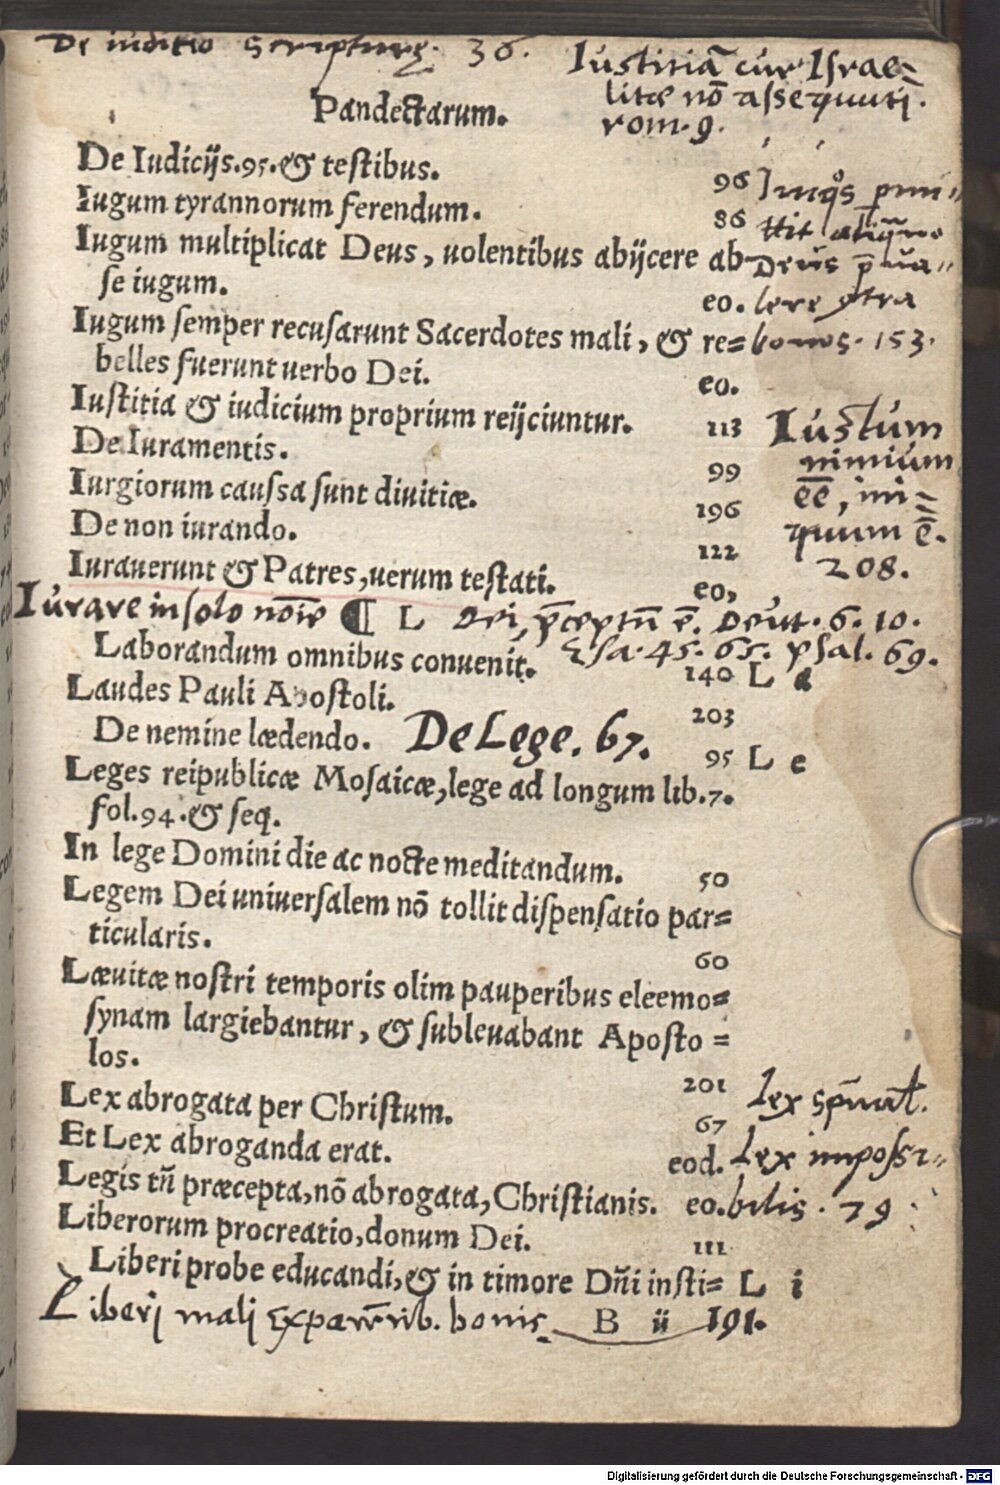 De iuditio Scripturę. 36.
Iustitiā cur Israe=
litæ nō assequuti.
rom. 9.
Pandectarum.
De Iudicijs.95.& testibus. 96
Iugum tyrannorum ferendum. 86
Iugum multiplicat Deus, uolentibus abijcere ab
se iugum. eo.
Iugum semper recusarunt Sacerdotes mali, & re=
belles fuerunt uerbo Dei. eo.
Iustitia & iudicium proprium reijciuntur. 113
De Iuramentis. 99
Iurgiorum caussa sunt diuitiæ. 196
De non iurando. 122
Iurauerunt & Patres, uerum testati. eo,
Deus
bonos. 153.
Iustum
nimium
eē̄, ini=
quum ē.
208.
Iurare in solo noīe ¶ L Dei, p̄ceptū ē. Deut. 6. 10.
Esa. 45. 65. psal. 69.
Laborandum omnibus conuenit. 140 L a
Laudes Pauli Apostoli. 203
De nemine lædendo. De Lege. 67. 95 L e
Leges reipublicæ Mosaicæ, lege ad longum lib.7.
fol.94.& seq.
In lege Domini die ac nocte meditandum. 50
Legem Dei uniuersalem nō tollit dispensatio par=
ticularis. 60
Læuitæ nostri temporis olim pauperibus eleemo=
synam largiebantur, & subleuabant Aposto=
los. 201
Lex abrogata per Christum. 67
Et Lex abroganda erat. eod.
Legis tñ præcepta, nō abrogata, Christianis. eo.
Liberorum procreatio, donum Dei. 111
Liberi probe educandi, & in timore Dñi insti= L i
Lex
Lex impossi=
bilis. 79
Liberj mali Ex bonis B ii 191.
Digitalisierung gefördert durch die Deutsche Forschungsgemeinschaft - DFG